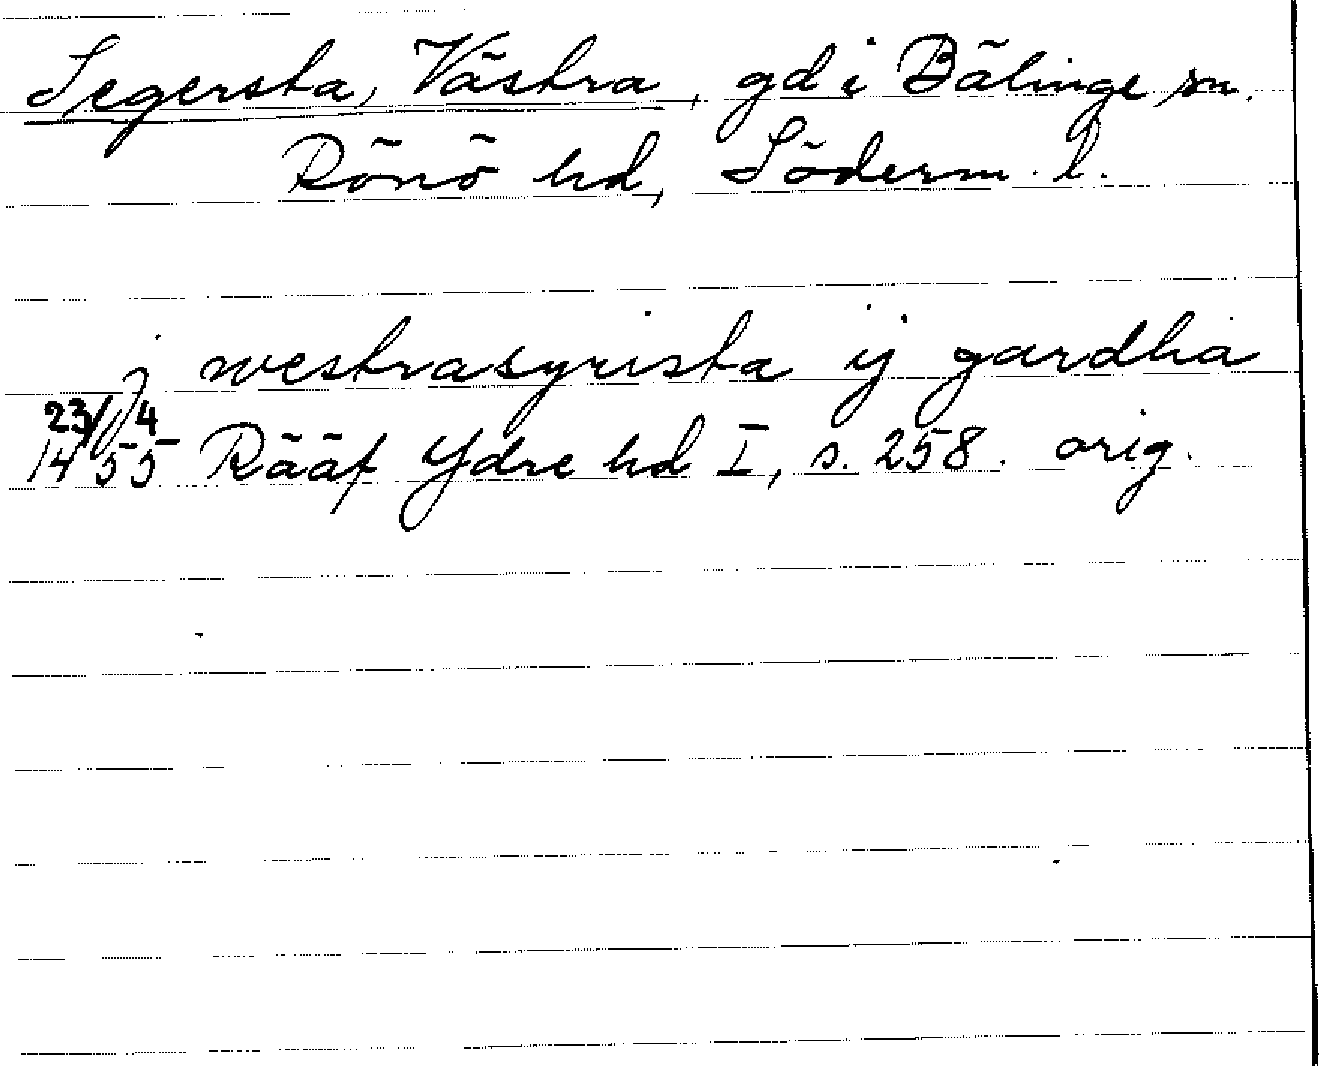 Segersta, Västra, gd i Bälinge sn.
Rönö hd, Söderm. l.
j westrasyrista ij gardha
23/4
1455 Rääf Ydre hd I, s. 258. orig.